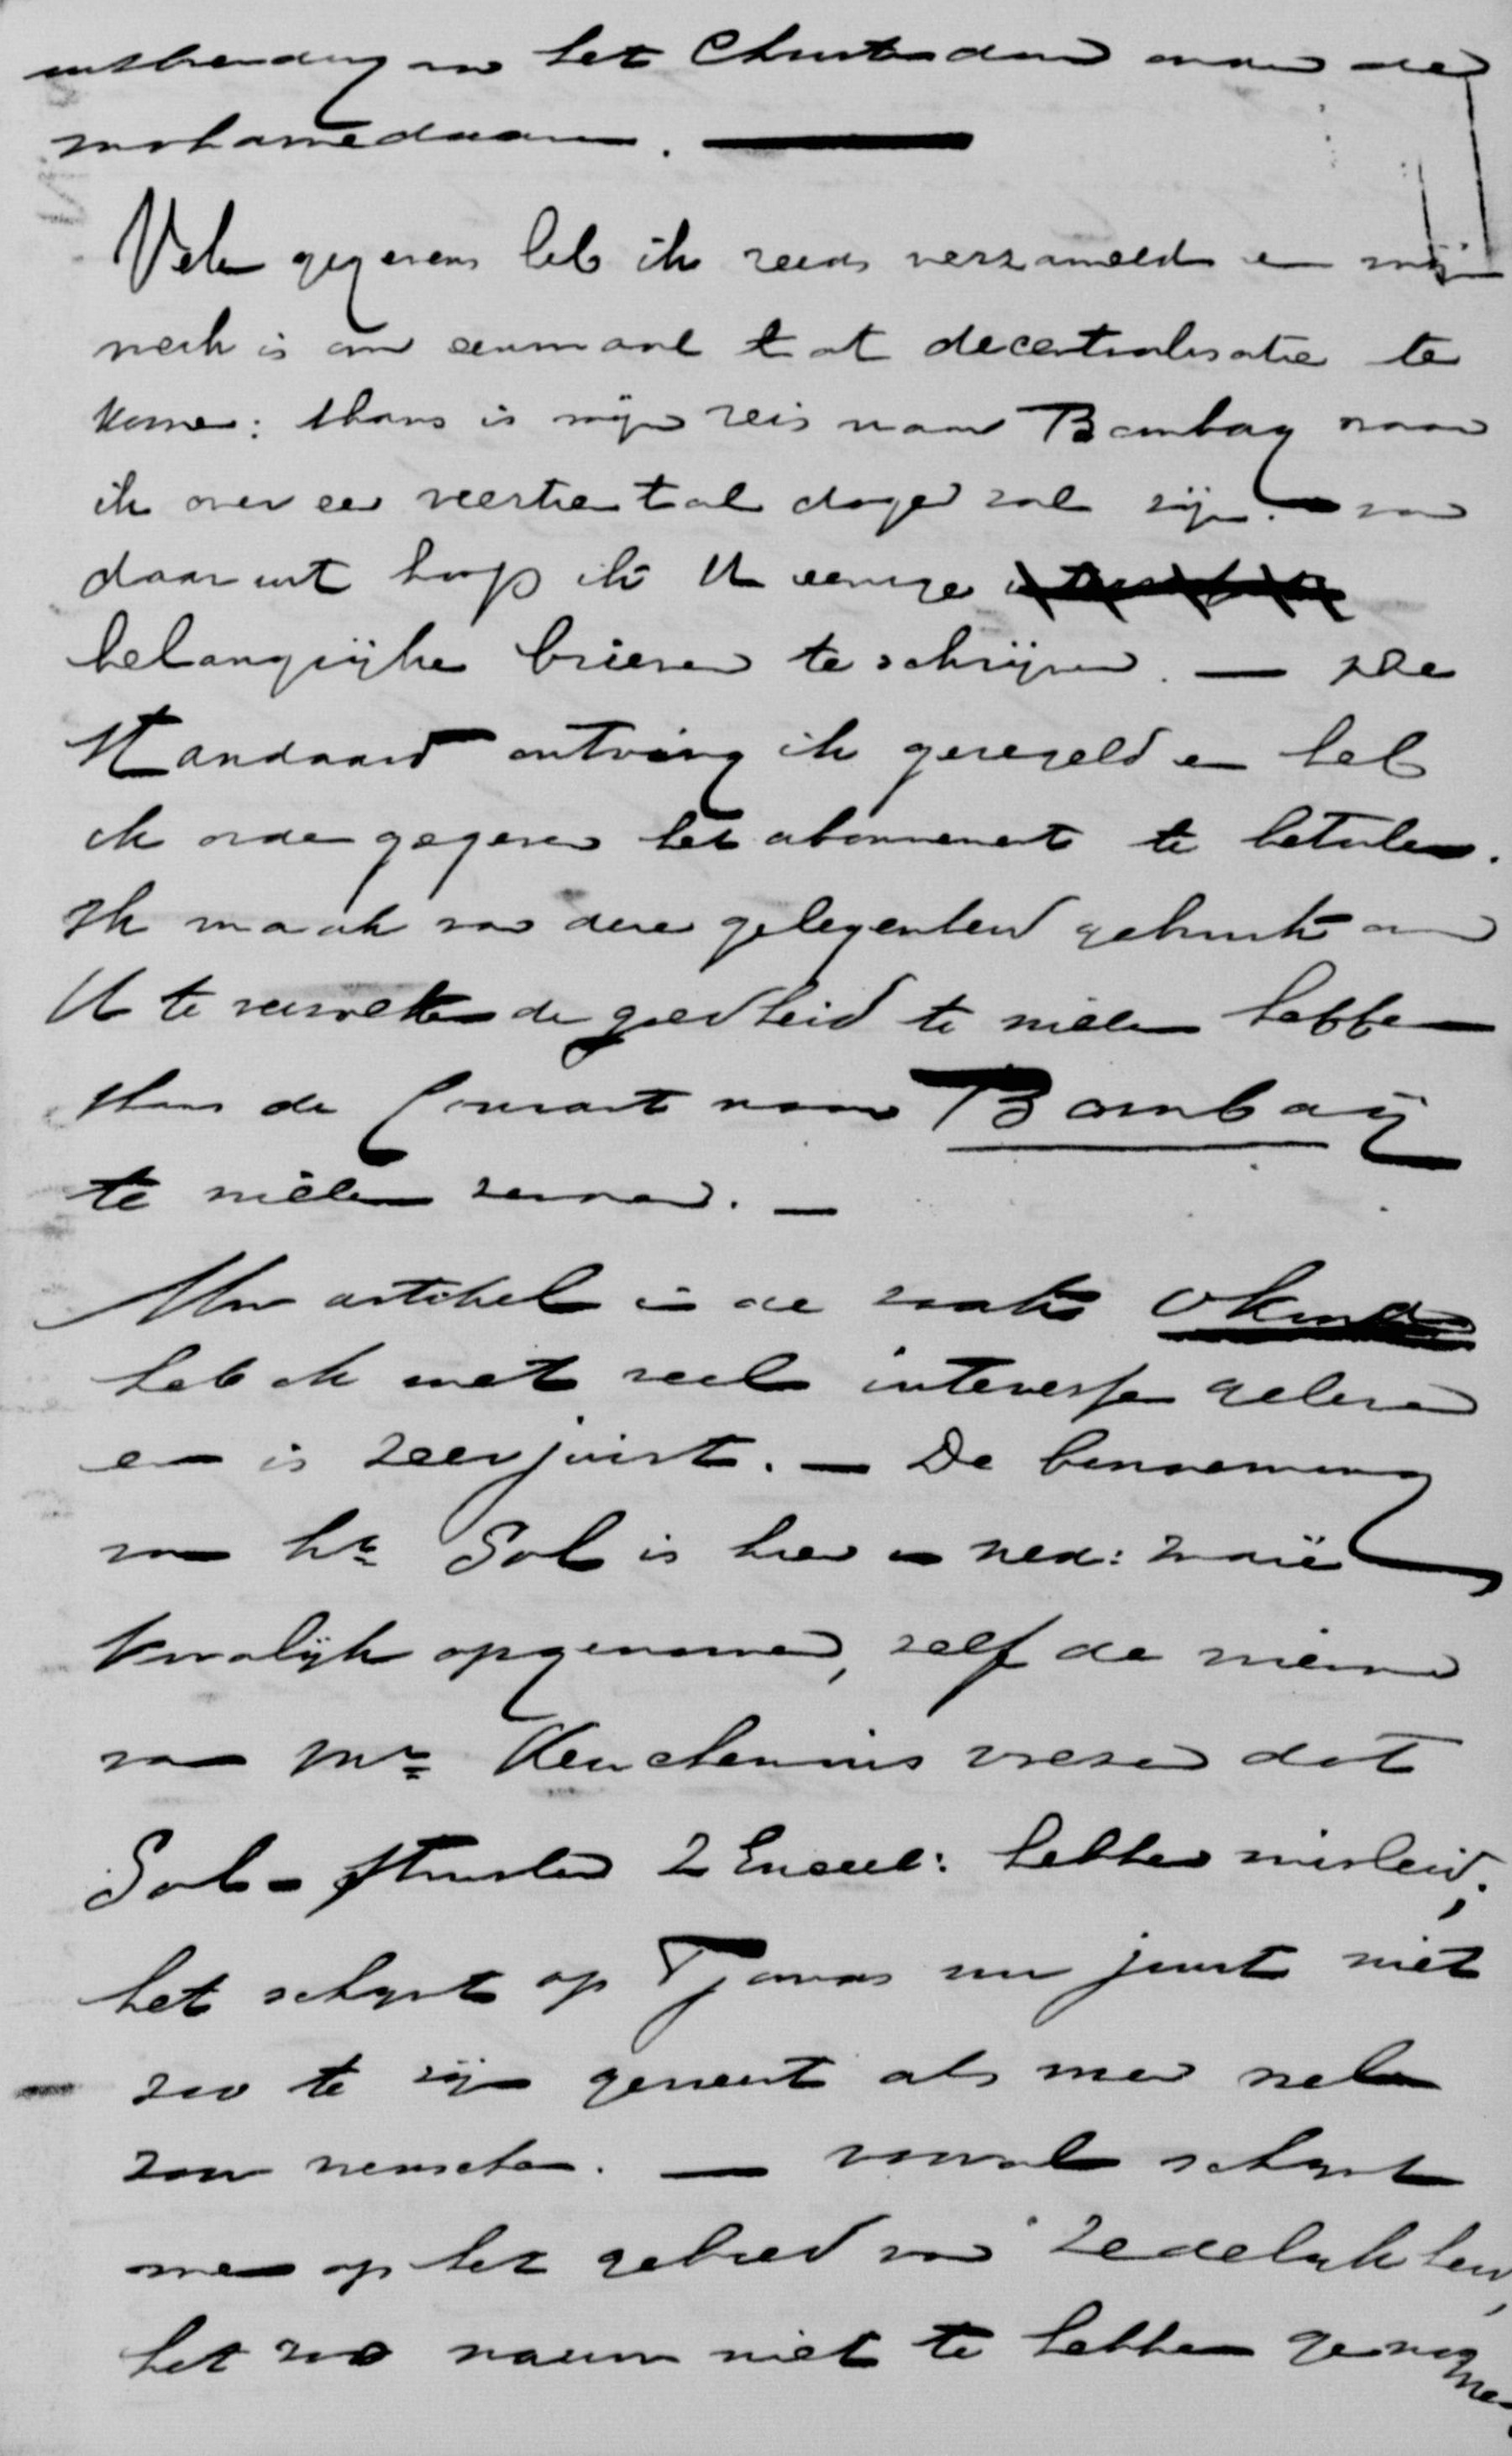 uitbreiding van het Christendom onder de
mohamedaanen.
Vele gegevens heb ik reeds verzameld en mijn
werk is om eenmaal tot decentralisatie te
komen: thans is mijn reis naar Bombay waar
ik over een veertiental dagen zal zijn. van
daar uit hoop ik U eenige
belangrijke brieven te schrijven. — De
Standaard ontving ik geregeld en heb
ik order gegeven het abonnement te betalen.
Ik maak van deze gelegenheid gebruik om
U te verzoeken de goedheid te willen hebben
thans de Courant naar Bombaÿ
te willen zenden. —
Uw artikel in de zaak
heb ik met veel interesse gelezen
en is zeer juist. — De benoeming
van hr Sol is hier in Ned: Indië
kwalijk opgenomen, zelf de vrienden
van Mr Keuchenius vreezen dat
Sol - 2 Excell: hebben misleid;
het schijnt op nu juist niet
zoo te zijn geweest als men wel
zou wenschen. — vooral schijnt
men op het gebied van zedelijkheid,
het zoo nauw niet te hebben genomen